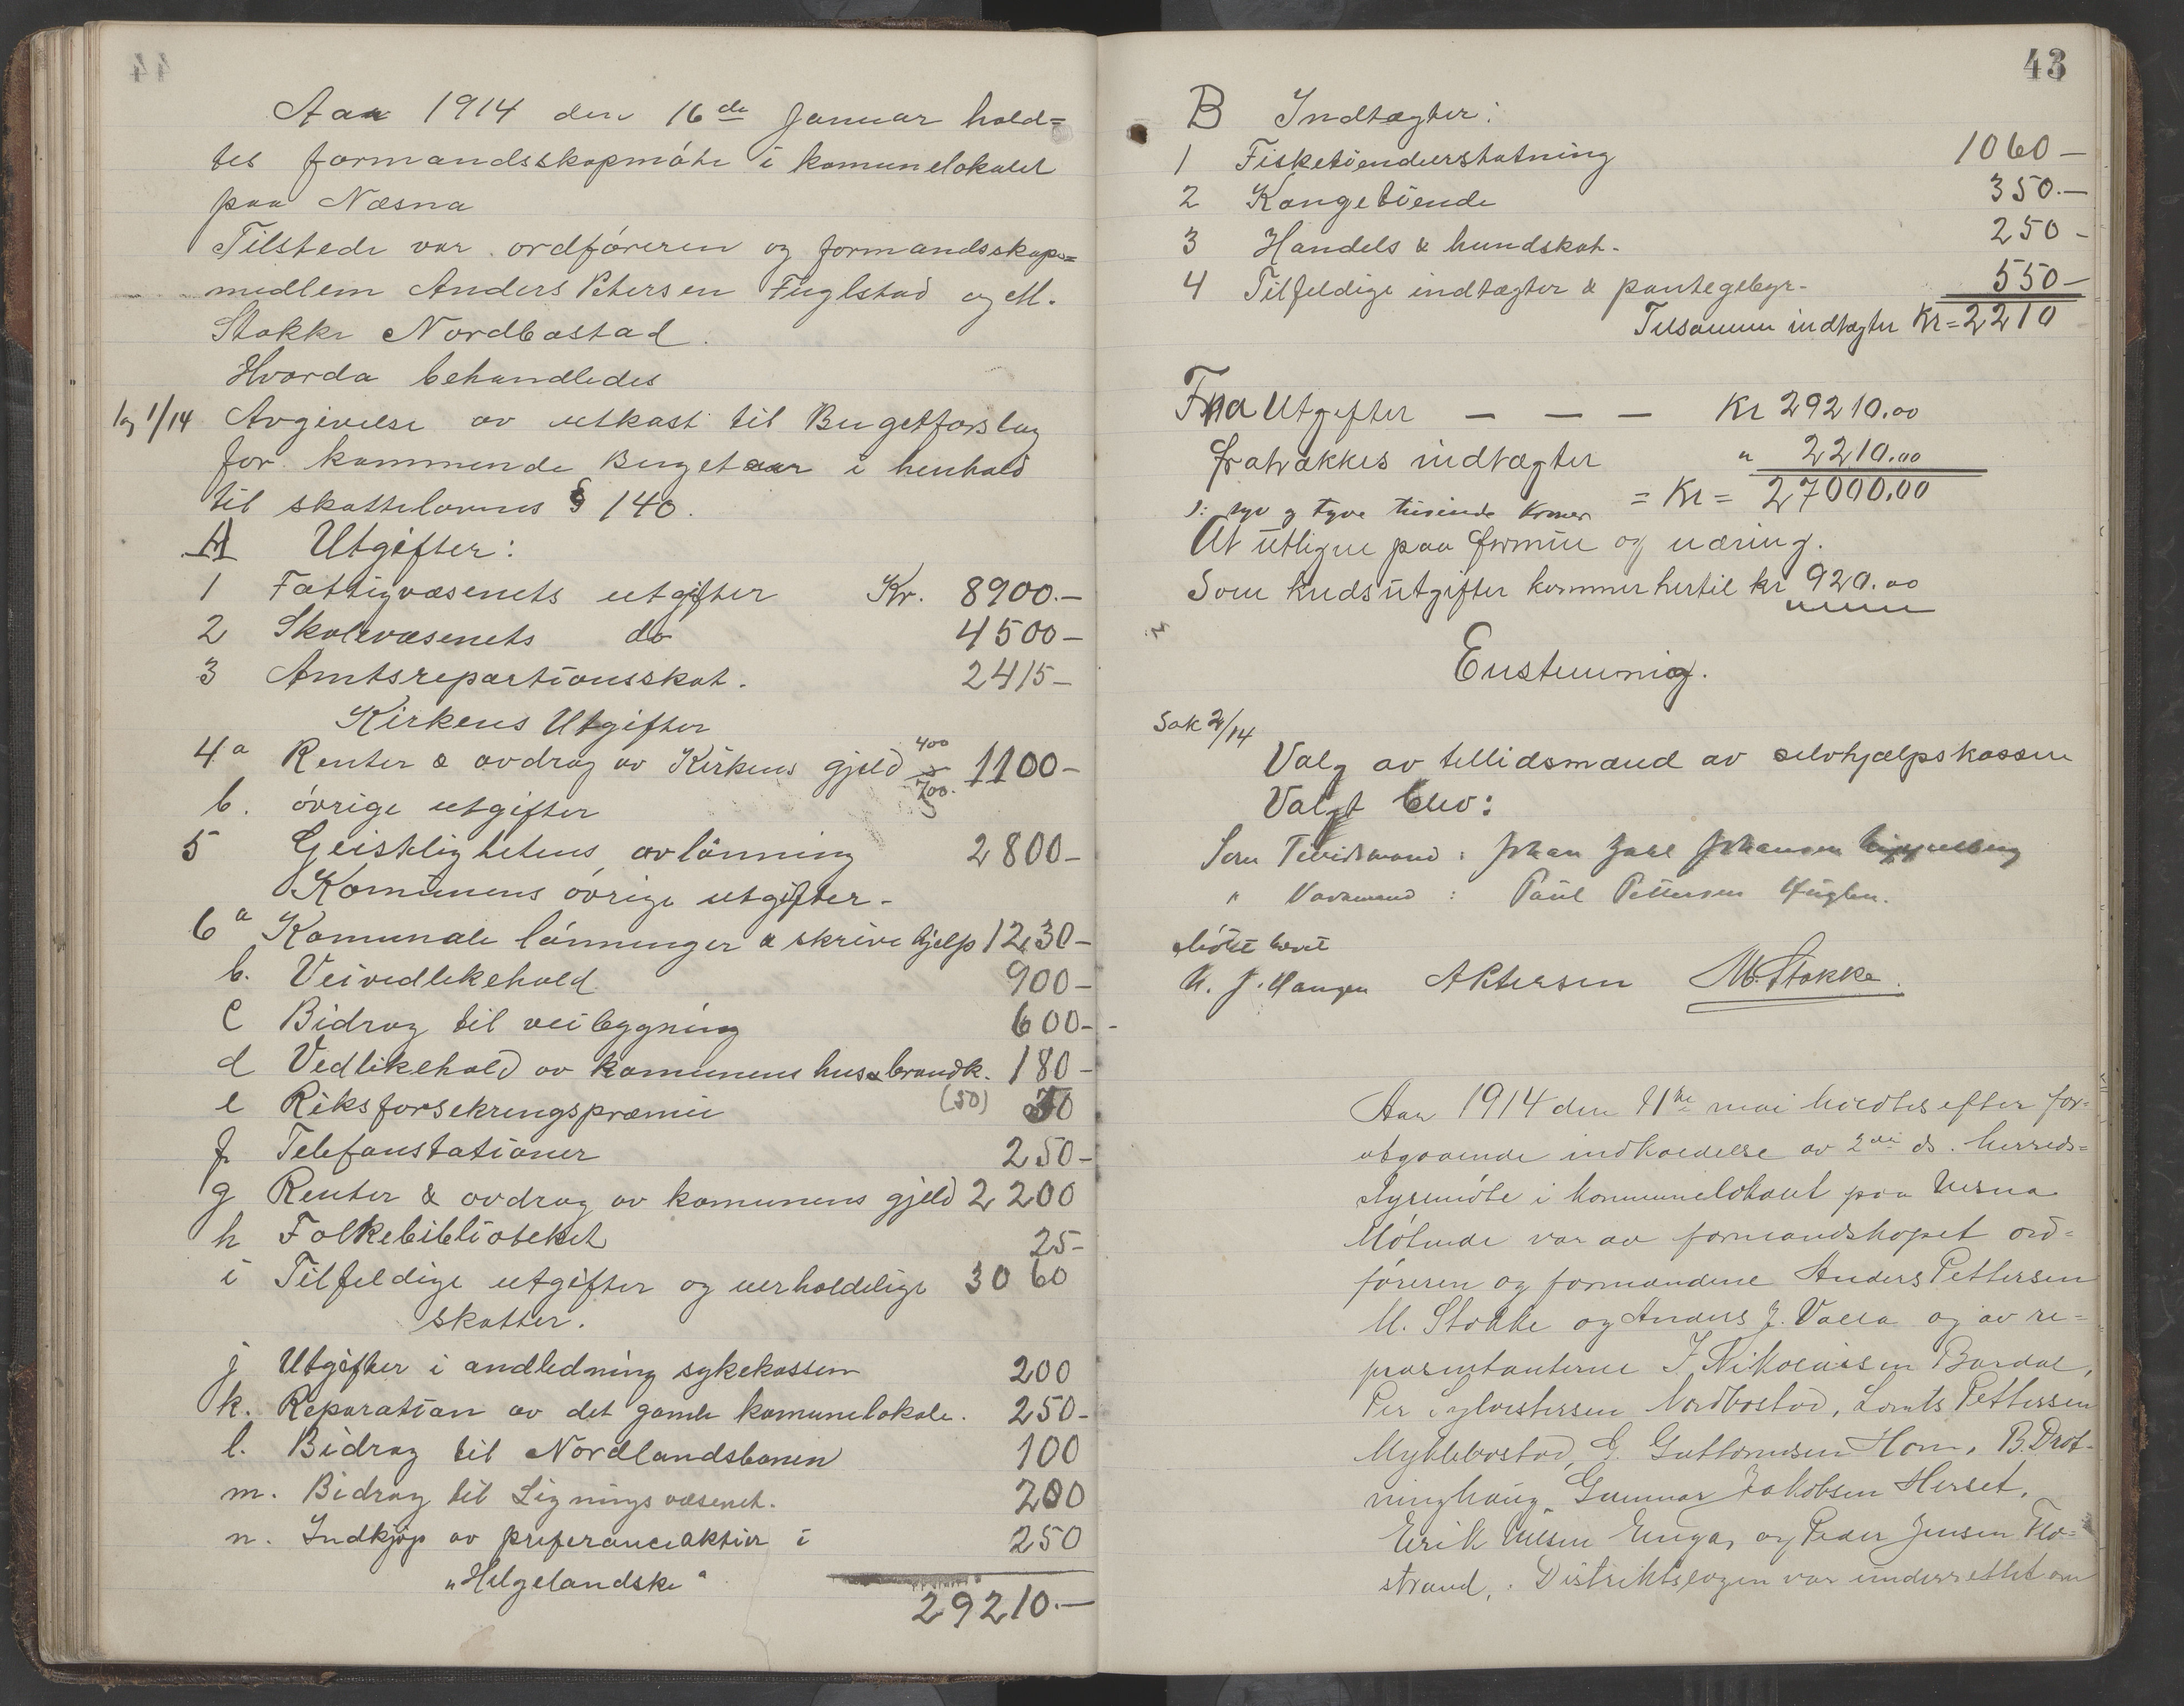 44
Aar 1914 den 16de Januar hold=
tes formandsskapmöte i komunelokalet
paa Næsna
Tilstede var ordföreren og formandsskaps=
medlem Anders Petersen Fuglstad og M.
Stokke Nordbostad.
Hvorda behandledes
Sag 1/14 Avgivelse av utkast til Bugetforslag
for kommende Bugetaar i henhold
til skattelovens § 140.
A Utgifter:
1 Fattigvæsenets utgifter Kr. 8900.-
2 Skolevæsenets do 4500-
3 Amtsrepartionsskat. 2415-
Kirkens Utgifter
4a Renter & avdrag av Kirkens gjeld 400 700. 1100-
b. övrige utgifter
5 Geistlighetens avlönning 2800-
Komunens övrige utgifter-
6a Komunale lönninger & skrivehjelp 1230-
b. Veivedlikehold 900-
c Bidrag til veibygning 600-
d Vedlikehold av komunens hus & brandk. 180-
e Riksforsekringspræmie (50) 50
f. Telefonstationer 250-
g Renter & avdrag av komunens gjeld 2200
h Folkebiblioteket 25-
i Tilfeldige utgifter og uerholdelige 3060
skatter.
j Utgifter i andledning sykekassen 200
k. Reparation av det gamle komunelokale. 250-
l. Bidrag til Nordlandsbanen 100
m. Bidrag til Ligningsvæsenet. 200
n. Indkjöp av preferanceaktier i 250
"Helgelandske"
29210.-
43
B Indtægter:
1 Fisketiendeerstatning 1060-
2 Kongetiende 350.-
3 Handels & hundskat. 250-
4 Tilfeldige indtægter & pantegebyr- 550-
Tilsammen indtægter Kr=2210
Fra Utgifter - - - Kr 29210.00
fratrækkes indtægter " 2210.00
ɔ: syv og tyve tusinde kroner = Kr = 27000.00
At utligne paa formue og næring.
Som kredsutgifter kommer hertil kr 920.00
Enstemmig.
Sak 2/14
Valg av tillidsmænd av selvhjælpskassen
Valgt blev:
Som Tillidsmand: Johan Johansen
" Varamand: Paul Pettersen
Mötet hævet
APetersen M. Stokke.
Aar 1914 den 11te mai holdtes efter for=
utgaaende indkaldelse av 2den ds. herreds=
styremöte i kommunelokalet paa Nesna
Mötende var av formandskapet ord=
föreren og formændene Anders Pettersen
M. Stokke og Anders J. Valla og av re=
præsentanterne J. Nikolaissen Bardal,
Per Sylvestersen Nordbostad, Lorents Pettersen
Myklebostad, G. Guttormsen Hom, B. Drot-
ninghaug, Gunnar Jakobsen Herset,
Erik Nilsen Enga, og Peder Jensen Flo=
strand. Distriktslægen var underrettet om